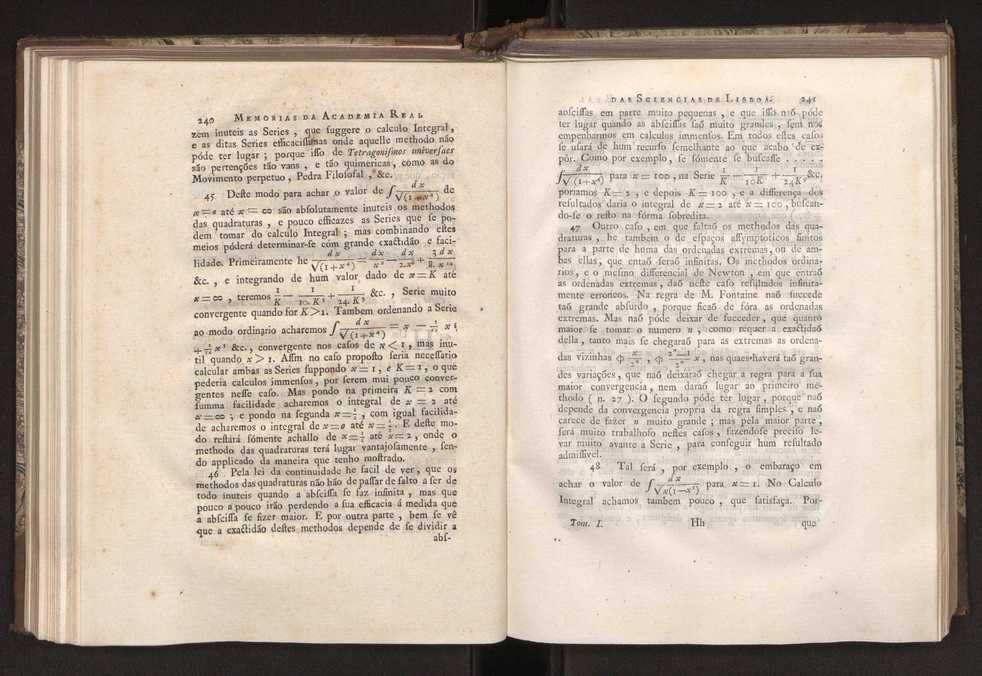 240 MEMORIAS DA ACADEMIA REAL
zem inuteis as Series , que suggere o calculo Integral,
e as ditas Series efficacissimas onde aquelle methodo não
póde ter lugar ; porque isso de Tetragonismos universaes
são pertenções tão vans , e tão quimericas, como as do
Movimento perpetuo , Pedra Filosofal , &c.
45 Deste modo para achar o valor de ∫ dx/√(1+x⁴) de
x=0 até x=∞ são absolutamente inuteis os methodos
das quadraturas , e pouco efficazes as Series que se po-
dem tomar do calculo Integral ; mas combinando estes
meios póderá determinar-se com grande exactidão e faci-
lidade. Primeiramente he dx/√(1+x⁴) = dx/x² − dx/2.x⁶ + 3dx/8.x¹⁰
&c. , e integrando de hum valor dado de x=K até
x=∞ , teremos 1/K − 1/10.K⁵ + 1/24.K⁹ &c. , Serie muito
convergente quando for K>1. Tambem ordenando a Serie
ao modo ordinario acharemos ∫ dx/√(1+x⁴) = x − 1/10 x⁵
+ 1/24 x⁹ &c., convergente nos casos de x<1, mas inu-
til quando x>1. Assim no caso proposto seria necessario
calcular ambas as Series suppondo x=1, e K=1, o que
pederia calculos immensos, por serem mui pouco conver-
gentes nesse caso. Mas pondo na primeira K=2 com
summa facilidade acharemos o integral de x=2 até
x=∞ ; e pondo na segunda x=½, com igual facilida-
de acharemos o integral de x=0 até x=½. E deste mo-
do restará sómente achallo de x=½ até x=2, onde o
methodo das quadraturas terá lugar vantajosamente , sen-
do applicado da maneira que tenho mostrado.
46 Pela lei da continuidade he facil de ver, que os
methodos das quadraturas não hão de passar de salto a ser de
todo inuteis quando a abscissa se faz infinita , mas que
pouco a pouco irão perdendo a sua efficacia á medida que
a abscissa se fizer maior. E por outra parte , bem se vê
que a exactidão destes methodos depende de se dividir a
abs-
DAS SCIENCIAS DE LISBOA. 241
abscissas em parte muito pequenas , e que isso naõ póde
ter lugar quando as abscissas saõ muito grandes , sem nos
empenharmos em calculos immensos. Em todos estes casos
se usará de hum recurso semelhante ao que acabo de ex-
pôr. Como por exemplo, se sómente se buscasse . . . . .
∫ dx/√(1+x⁴) para x=100, na Serie 1/K − 1/10K⁵ + 1/24K⁹ &c,
poriamos K=2 , e depois K=100 , e a differença dos
resultados daria o integral de x=2 até x=100, buscan-
do-se o resto na fórma sobredita.
47 Outro caso , em que faltaõ os methodos das qua-
draturas , he tambem o de espaços assymptoticos finitos
para a parte de huma das ordenadas extremas, ou de am-
bas ellas, que entaõ seraõ infinitas. Os methodos ordina-
rios, e o mesmo differencial de Newton , em que entraõ
as ordenadas extremas, daõ neste caso resultados infinita-
mente erroneos. Na regra de M. Fontaine naõ succede
taõ grande absurdo , porque ficaõ de fóra as ordenadas
extremas. Mas naõ póde deixar de succeder, que quanto
maior se tomar o numero n , como requer a exactidaõ
della , tanto mais se chegaraõ para as extremas as ordena-
das vizinhas φ x/2ⁿ , φ (2ⁿ−1)/2ⁿ x, nas quaes haverá taõ gran-
des variações, que naõ deixaraõ chegar a regra para a sua
maior convergencia, nem daraõ lugar ao primeiro me-
thodo ( n. 27 ). O segundo póde ter lugar, porque naõ
depende da convergencia propria da regra simples , e naõ
carece de fazer n muito grande ; mas pela maior parte ,
será muito trabalhoso nestes casos , fazendose preciso le-
var muito avante a Serie , para conseguir hum resultado
admissivel.
48 Tal será , por exemplo , o embaraço em
achar o valor de ∫ dx/√x(1−x²) para x=1. No Calculo
Integral achamos tambem pouco , que satisfaça. Por-
Tom. I. Hh que